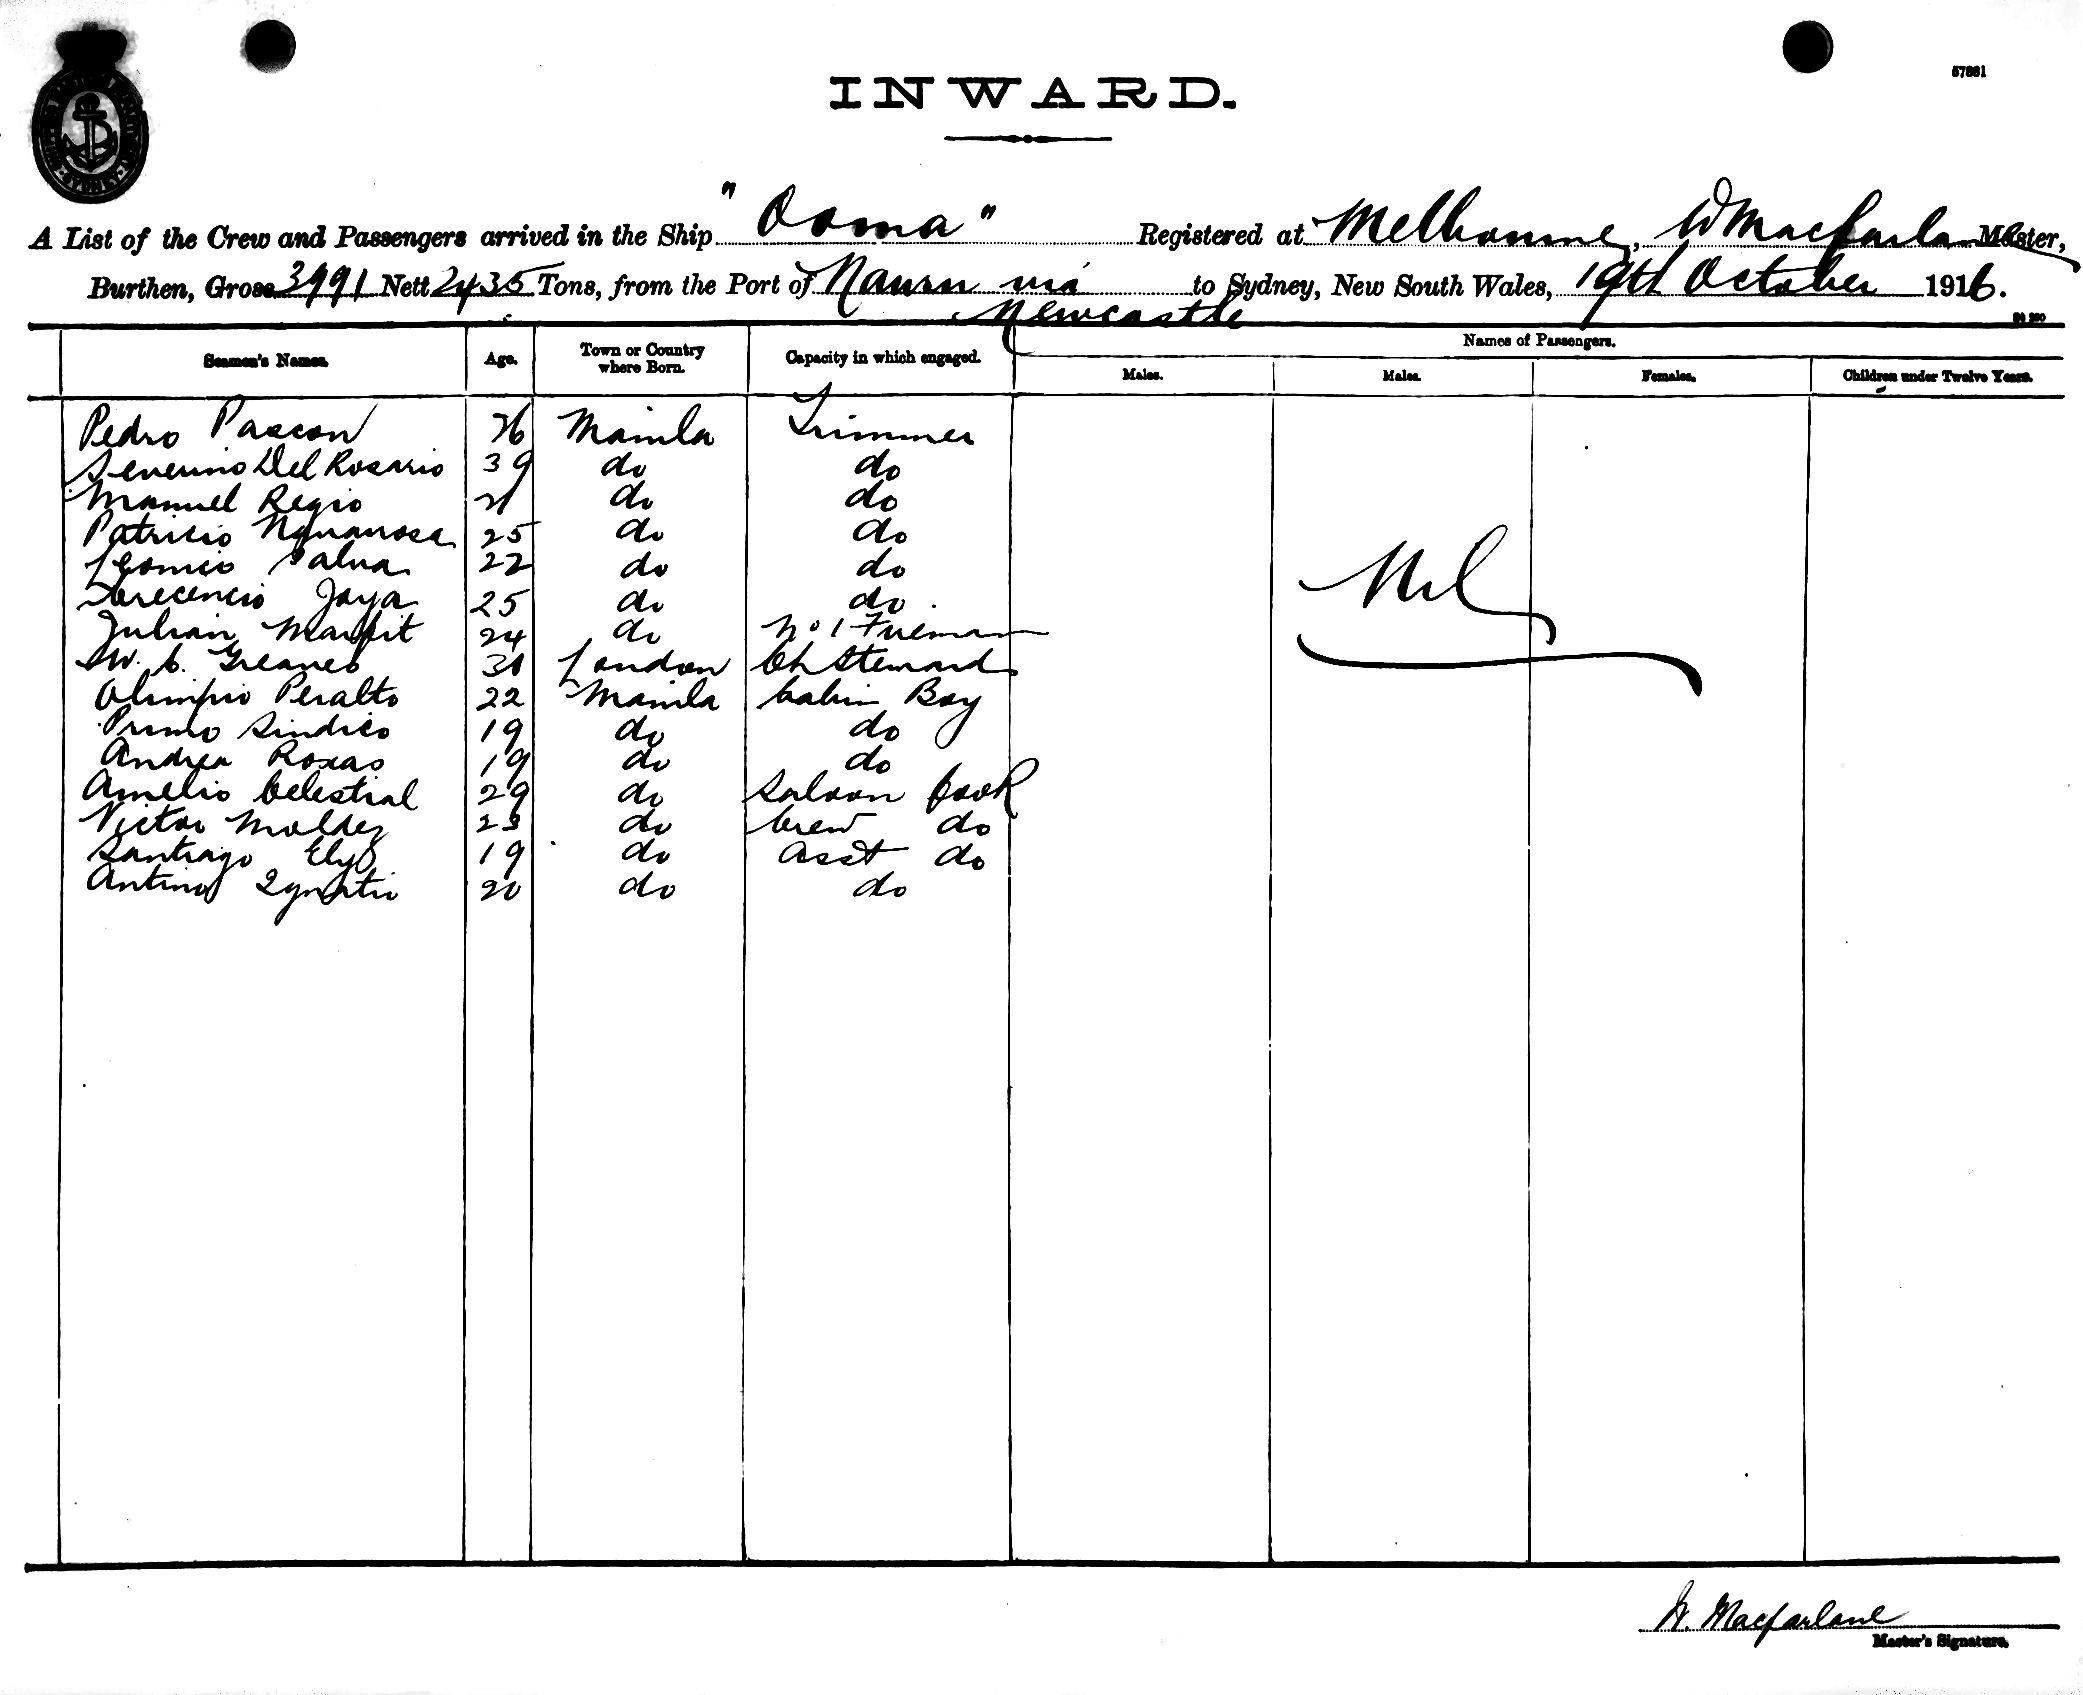 57881
INWARD.
SYDNEY
A List of the Crew and Passengers arrived in the Ship "Ooma" Registered at Melbourne, W Macfarlane Master,
Burthen, Gross 3991 Nett 2435 Tons, from the Port of Nauru via Newcastle to Sydney, New South Wales, 19th October 1916.
Names of Passengers.
Seamen's Names. Age. Town or Country where Born. Capacity in which engaged. Males. Males. Females. Children under Twelve Years.
Pedro Pascon 26 Manila Trimmer
Severino Del Rosario 39 do do
Manuel Regio 21 do do
Patricio 25 do do
Leoncio Salva 22 do do
Jaya 25 do do
Julian Marfit 24 do No 1 Fireman
W. C. Greaves 31 London Ch Steward
Olimpio Peralto 22 Manila Cabin Boy
Primo Sindico 19 do do
Andrea Roxas 19 do do
Amelio Celestial 29 do Saloon Cook
Victor Moldez 23 do Crew do
Santiago Ely 19 do Asst do
Antino Ignatio 20 do do
Nil
W. Macfarlane
Master's Signature.